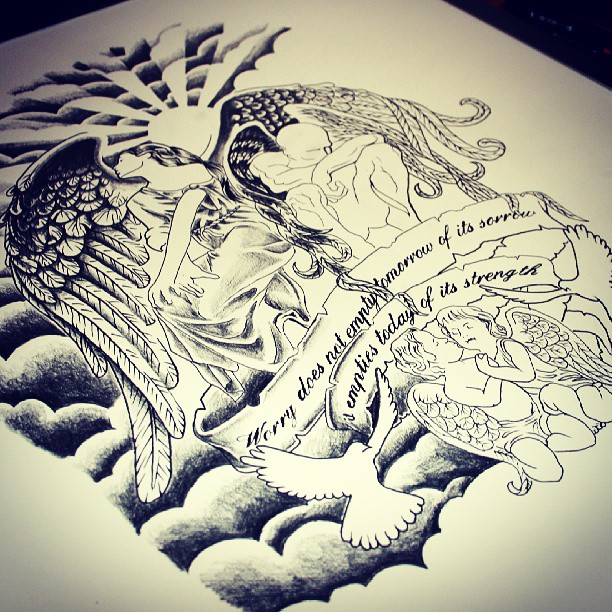 Worry does not empty tomorrow of its sorrow
it empties today of its strength